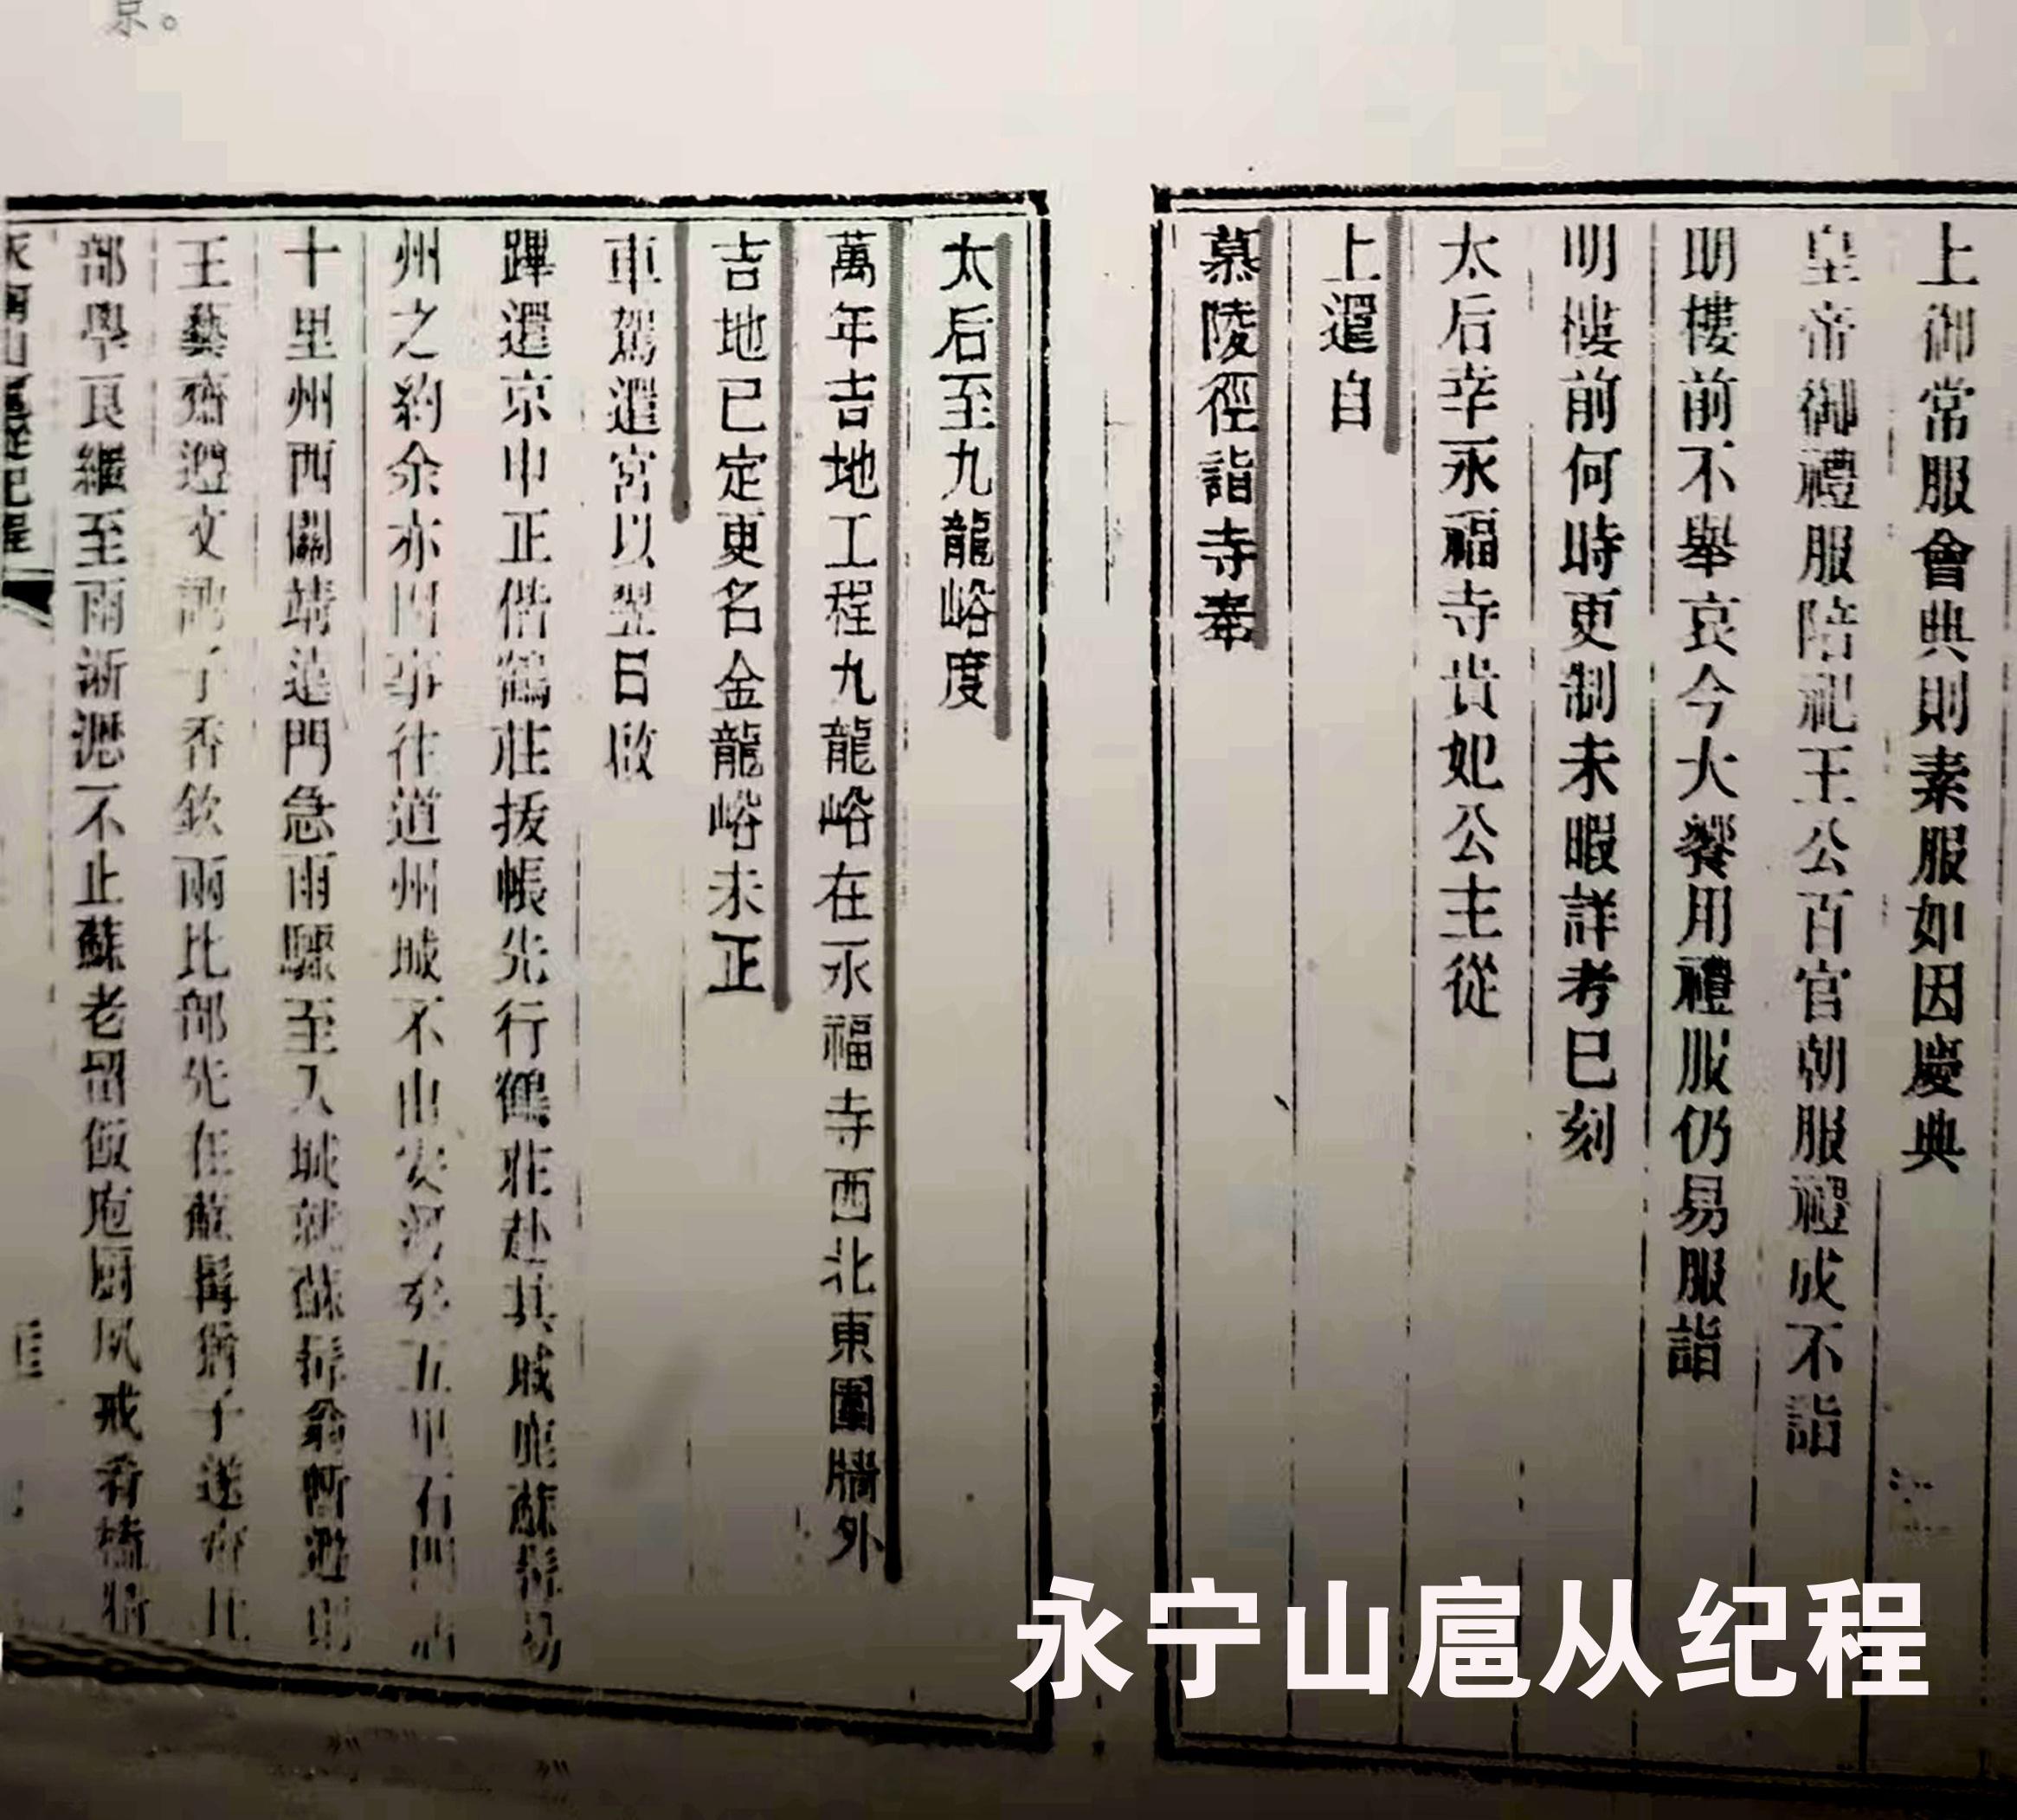 京。
上御常服會典則素服如因慶典
皇帝御禮服陪祀王公百官朝服禮成不詣
明樓前不舉哀今大饗用禮服仍易服詣
明樓前何時更制未暇詳考巳刻
太后幸永福寺貴妃公主從
上還自
慕陵徑詣寺奉
太后至九龍峪度
萬年吉地工程九龍峪在永福寺西北東圍牆外
吉地已定更名金龍峪未正
車駕還宮以翌日啟
蹕還京申正偕鶴莊拔帳先行鶴莊赴其戚
州之約余亦因事往道州城不由安河
十里州西關靖遠門急雨驟至入城就蘇
王藝齋 文 子香 兩比部先在蘇
部學良繼至雨淅瀝不止蘇老留飯庖廚夙戒肴
永寧山扈從紀程
永宁山扈从纪程